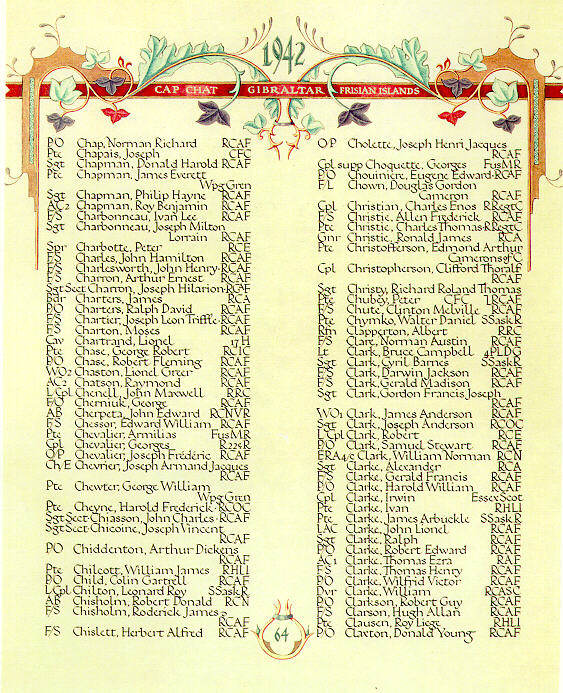 1942
CAP CHAT GIBRALTAR FRISIAN ISLANDS
P/O Chap, Norman Richard RCAF
Pte Chapais, Joseph CFC
Sgt Chapman, Donald Harold RCAF
Pte Chapman, James Everett
Wpg Gren
Sgt Chapman, Philip Hayne RCAF
AC2 Chapman, Roy Benjamin RCAF
F/S Charbonneau, Ivan Lee RCAF
Sgt Charbonneau, Joseph Milton
Lorrain RCAF
Spr Charbotte, Peter RCE
F/S Charles, John Hamilton RCAF
F/S Charlesworth, John Henry·RCAF
F/S Charron, Arthur Ernest RCAF
Sgt Sect Charron, Joseph Hilarion·RCAF
Bdr Charters, James RCA
P/O Charters, Ralph David RCAF
F/S Chartier, Joseph Leon Triffle·RCAF
F/S Charton, Moses RCAF
Cav Chartrand, Lionel 17H
Pte Chase, George Robert RCIC
P/O Chase, Robert Fleming RCAF
WO2 Chaston, Lionel Greer RCAF
AC2 Chatson, Raymond RCAF
L/Cpl Chenell, John Maxwell RRC
F/O Cherniuk, George RCAF
AB Cherpeta, John Edward RCNVR
F/S Chessor, Edward William RCAF
Pte Chevalier, Annilias FusMR
Cpl Chevalier, Georges R22eR
O/P Chevalier, Joseph Fréderic RCAF
Ch/E Chevrier, Joseph Armand Jacques
RCAF
Pte Chewter, George William
Wpg Gren
Pte Cheyne, Harold Frederick·RCOC
Sgt Sect·Chiasson, John Charles·RCAF
Sgt Sect·Chicoine, Joseph Vincent
RCAF
P/O Chiddenton, Arthur Dickens
RCAF
Pte Chilcott, William James RHLI
P/O Child, Colin Gartrell RCAF
L/Cpl Chilton, Leonard Roy SSaskR
AB Chisholm, Robert Donald RCN
F/S Chisholm, Roderick James
RCAF
F/S Chislett, Herbert Alfred RCAF
O/P Cholette, Joseph Henri Jacques
RCAF
Cpl supp Choquette, Georges FusMR
P/O Chouiniere, Eugene Edward·RCAF
F/L Chown, Douglas Gordon
Cameron RCAF
Cpl Christian, Charles Enos RRegtC
F/S Christie, Allen Frederick RCAF
Pte Christie, Charles Thomas·RRegtC
Gnr Christie, Ronald James RCA
Pte Christofferson, Edmond Arthur
Camerons of C
Cpl Christopherson, Clifford Thoralf
RCAF
Sgt Christy, Richard Roland Thomas
Pte Chuboy, Peter CFC RCAF
F/S Chute, Clinton Melville RCAF
Pte Chymko, Walter Daniel SSaskR
Rfn Clapperton, Albert RRC
F/S Clare, Norman Austin RCAF
Lt Clark, Bruce Campbell 4PLDG
Sgt Clark, Cyril Barnes SSaskR
F/S Clark, Darwin Jackson RCAF
F/S Clark, Gerald Madison RCAF
Sgt Clark, Gordon Francis Joseph
RCAF
WO1 Clark, James Anderson RCAF
Sgt Clark, Joseph Anderson RCOC
L/Cpl Clark, Robert RCE
P/O Clark, Samuel Stewart RCAF
ERA4/c Clark, William Norman RCN
Sgt Clarke, Alexander RCA
F/S Clarke, Gerald Francis RCAF
P/O Clarke, Harold William RCAF
Cpl Clarke, Irwin Essex Scot
Pte Clarke, Ivan RHLI
Pte Clarke, James Arbuckle SSaskR
LAC Clarke, John Lionel RCAF
Sgt Clarke, Ralph RCAF
P/O Clarke, Robert Edward RCAF
AC1 Clarke, Thomas Ezra RAF
F/S Clarke, Thomas Henry RCAF
P/O Clarke, Wilfrid Victor RCAF
Dvr Clarke, William RCASC
P/O Clarkson, Robert Guy RCAF
F/S Clarson, Hugh Allan RCAF
Pte Clausen, Roy Liege RHLI
P/O Claxton, Donald Young RCAF
64